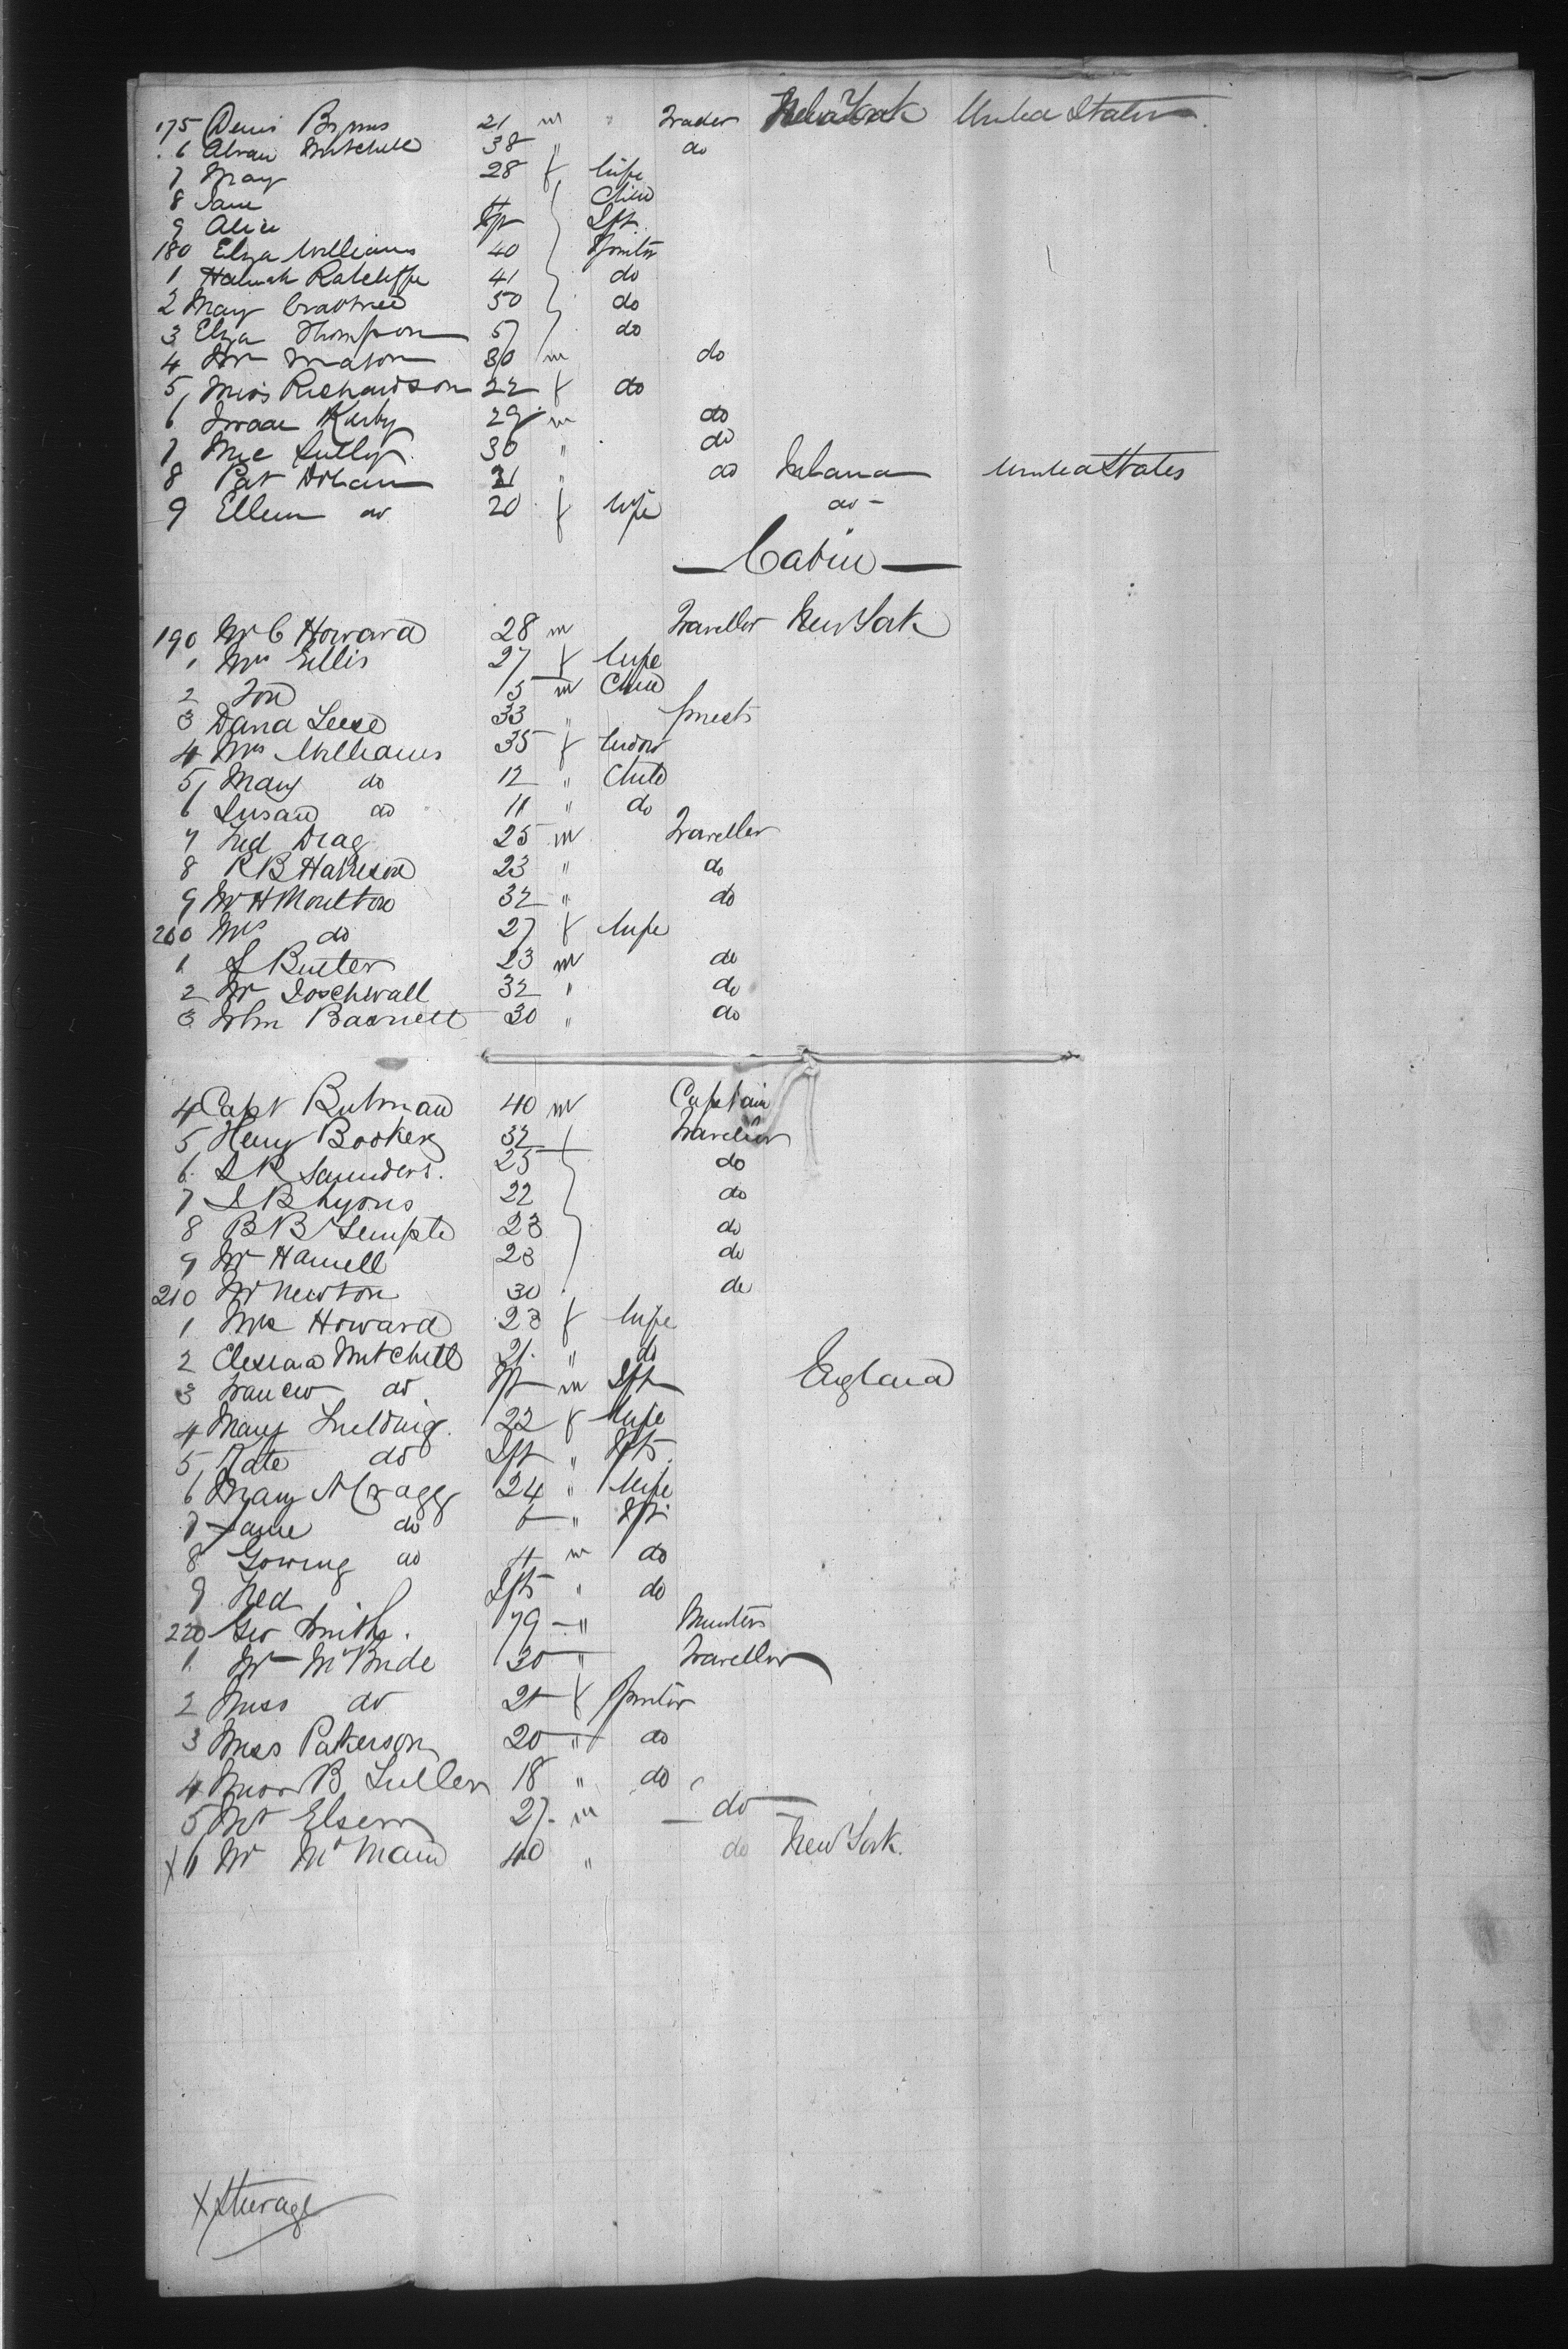 175 Denis Byrns 21 m " Trader New York United States
6 Abram Mitchell 38 " do
7 Mary 28 f Wife
8 Jane 4 Child
9 Alice Ift Ift
180 Eliza Williams 40 Spinster
1 Hannah Ratcliffe 41 do
2 Mary Crabtree 50 do
3 Eliza Thompson 57 do
4 Mr Maton 30 m do
5 Miss Richardson 22 f do
6 Isaac Kirby 29 m do
7 Mic Sully 30 " do
8 Pat Dolan 21 " do Ireland United States
9 Ellen do 20 f Wife do
— Cabin —
190 Mr C Howard 28 m Traveller New York
1 Mrs Ellis 27 f Wife
2 Son 5 m Child
3 David Leese 33 " priest
4 Mrs Williams 35 f Widow
5 Mary do 12 " Child
6 Susan do 11 " do
7 Fred Drag 25 m Traveller
8 R B Harrison 23 " do
9 Mr H Moulton 32 " do
200 Mrs do 27 f Wife
1 S Butler 23 m do
2 Mr Doschwall 32 " do
3 John Barnett 30 " do
4 Capt Butman 40 m Captain
5 Henry Booker 32 Traveller
6 S R Saunders. 25 do
7 S B Lyons 22 do
8 B B Semple 23 do
9 Mr Hamell 23 do
210 Mr Newton 30 do
1 Mrs Howard 23 f Wife
2 Mitchell 21 " do
3 Francis do Ift m Ift England
4 Mary 22 f Wife
5 Kate do Ift " Ift
6 Mary A Cragg 24 " Wife
7 Jane do 6 " Ift
8 Gowing do 4 m do
9 Fred Ift " do
220 Geo Smith. 79 " Minister
1 Mr McBride 30 " Traveller
2 Miss do 21 f Spinster
3 Miss Patterson 20 " do
4 Miss B Fuller 18 " do
5 Mr Elsem 27 m do
x 6 Mr McMain 40 " do New York.
x Steerage